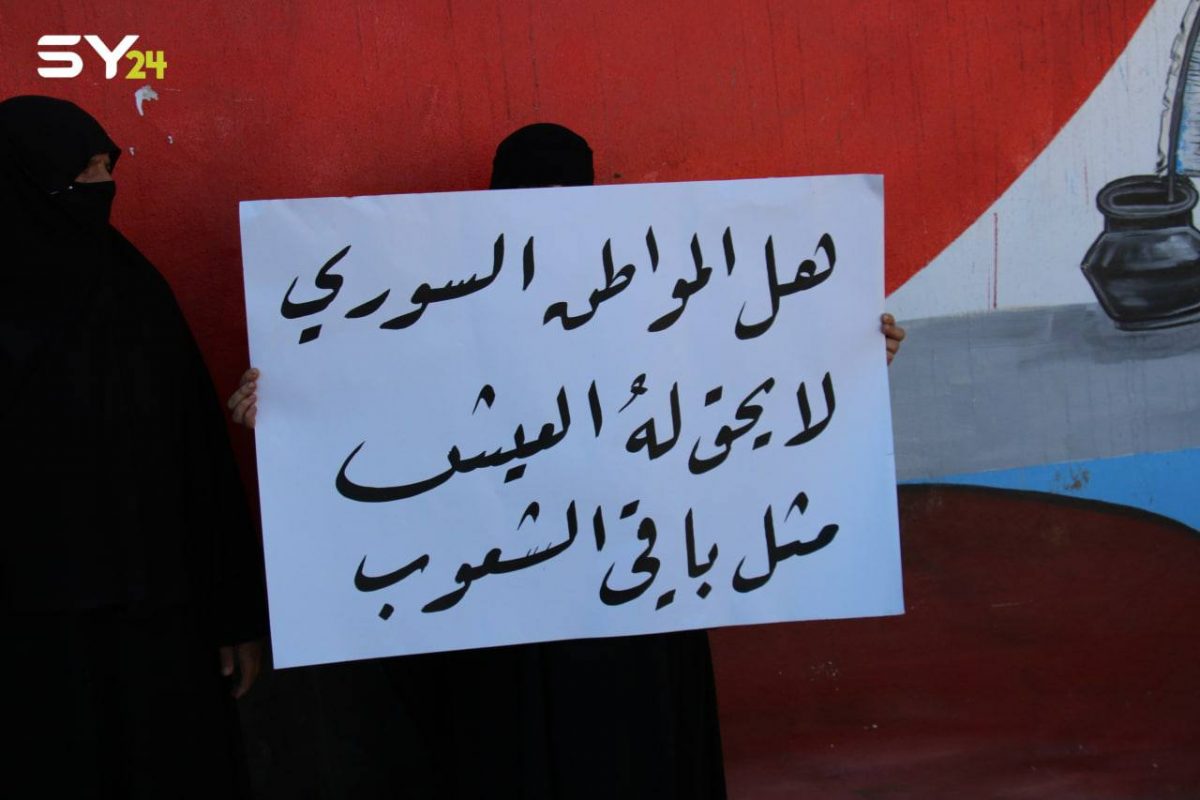 SY24
هل المواطن السوري
لا يحق لهُ العيش
مثل باقي الشعوب